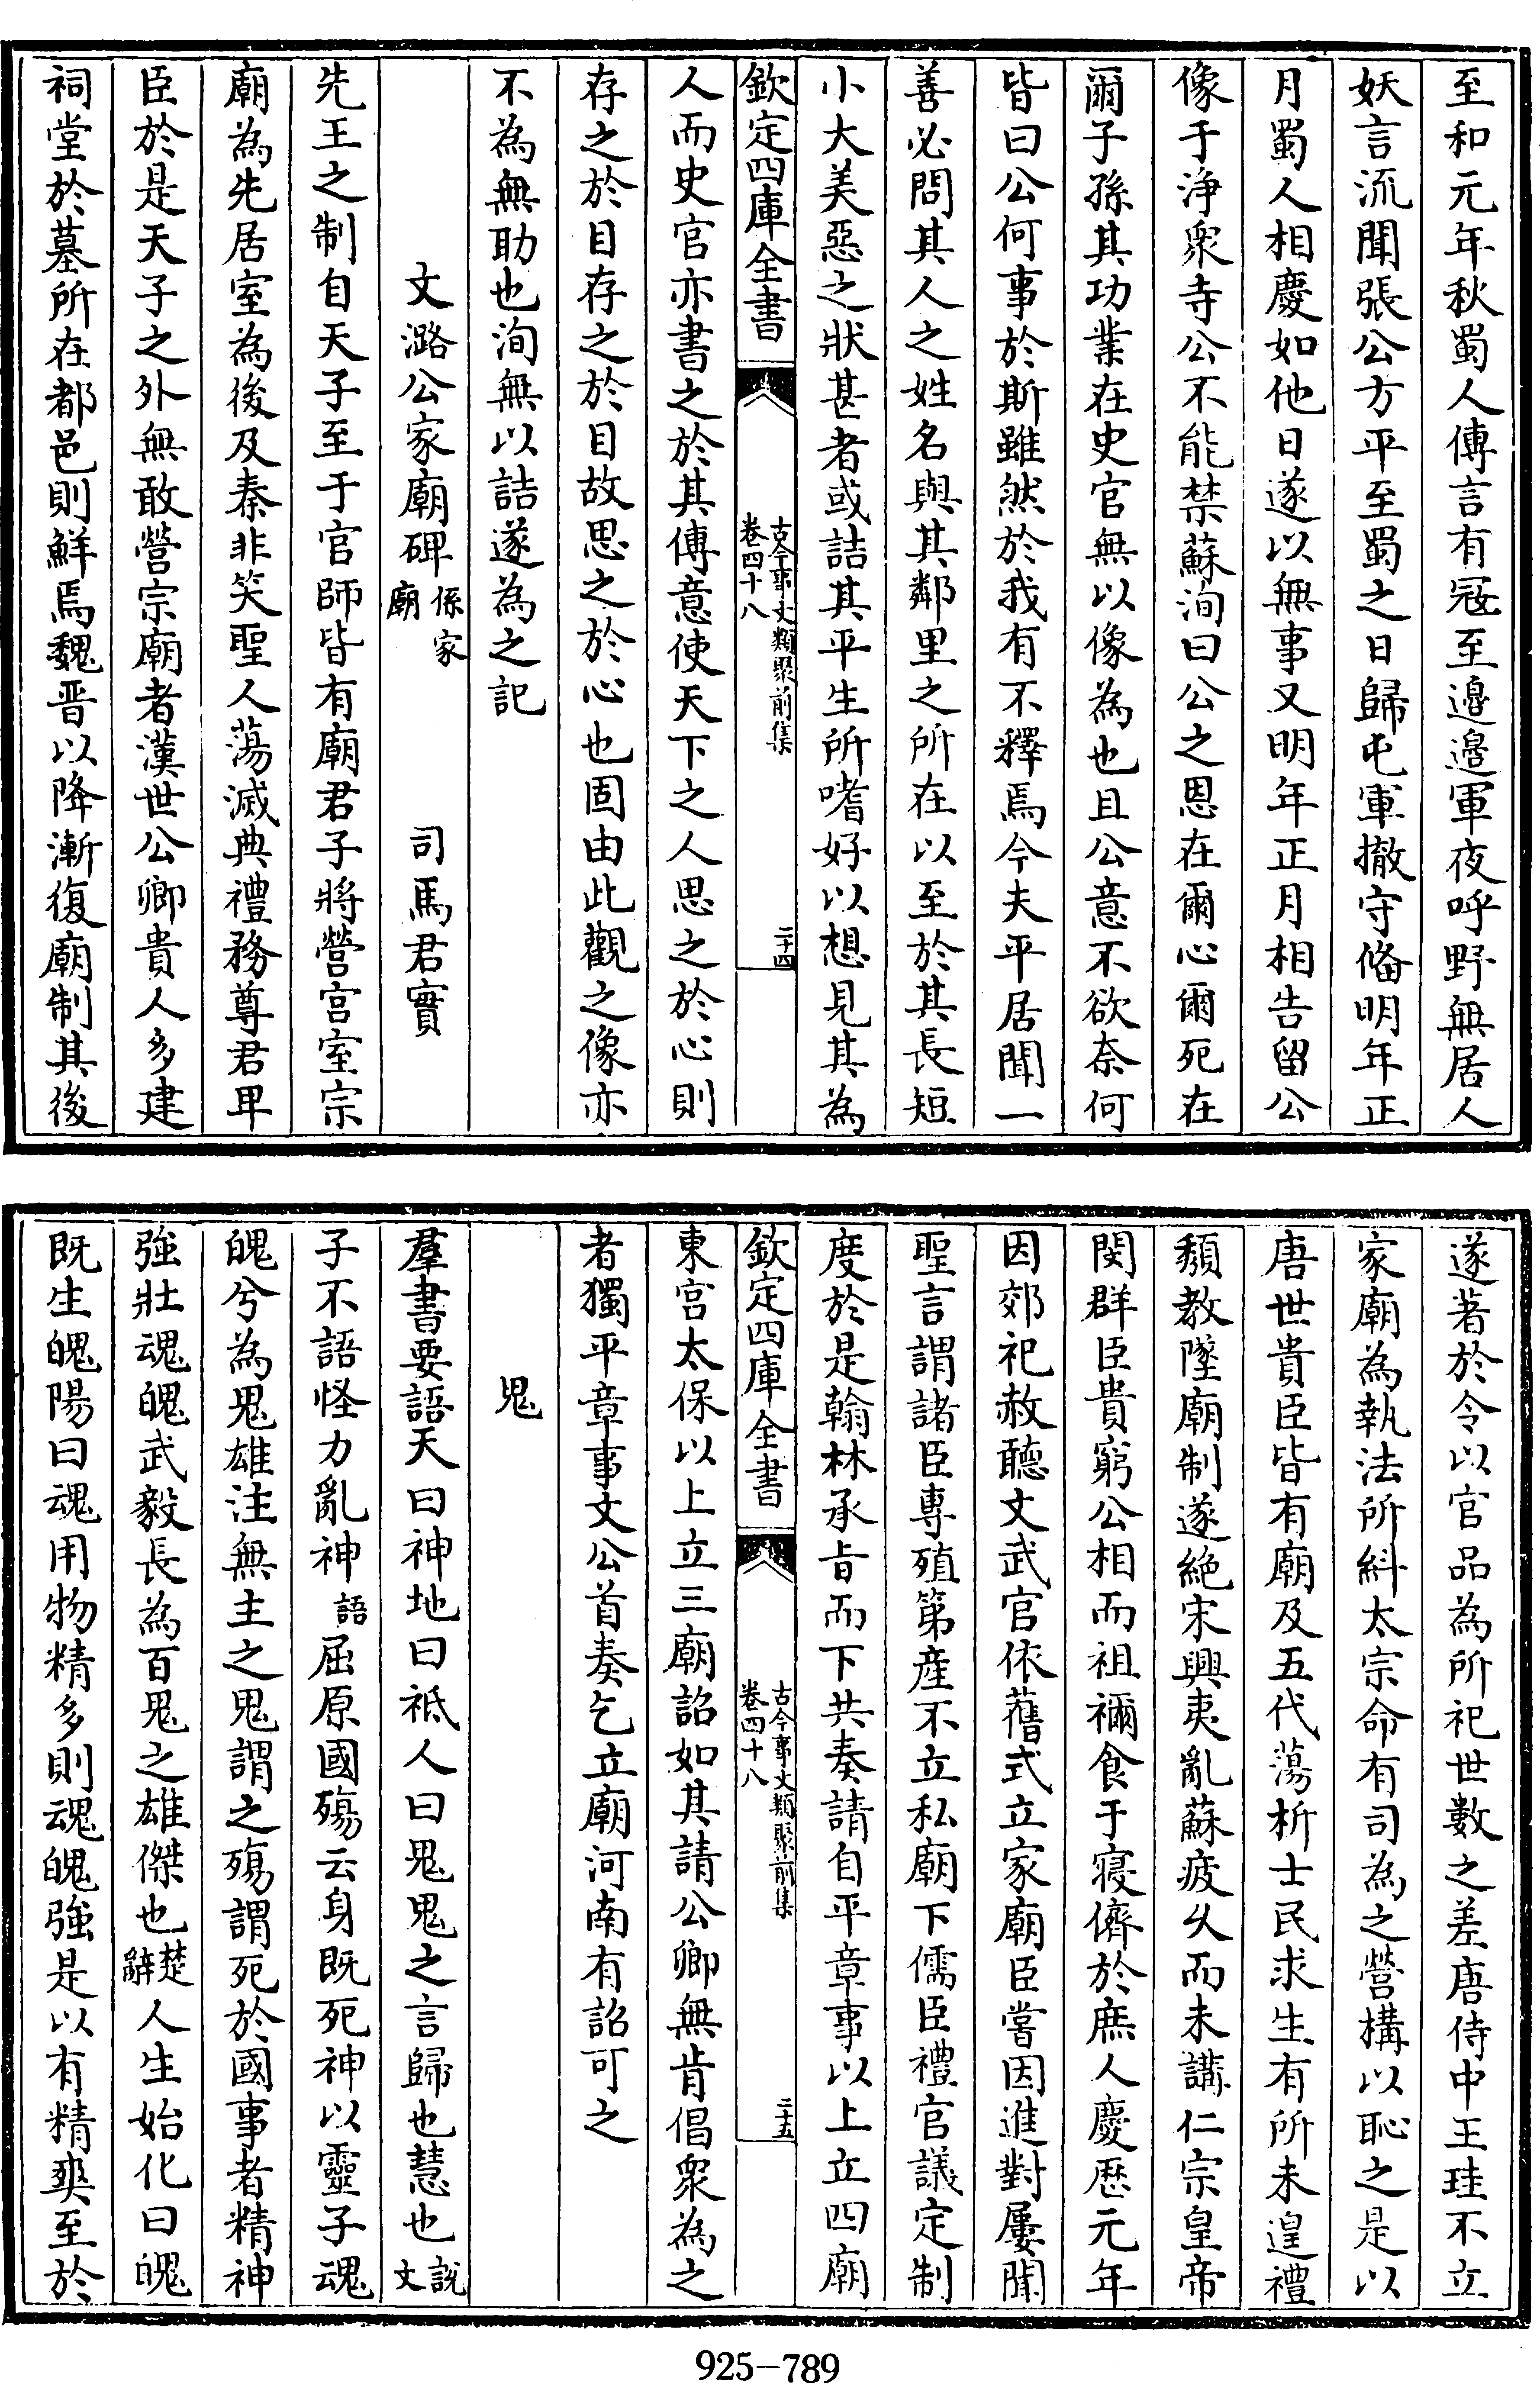 至和元年秋蜀人傳言有冦至邉邉軍夜呼野無居人
妖言流聞張公方平至蜀之日歸屯軍撤守俻明年正
月蜀人相慶如他日遂以無事又明年正月相告留公
像于浄衆寺公不能禁蘇洵曰公之恩在爾心爾死在
爾子孫其功業在史官無以像為也且公意不欲奈何
皆曰公何事於斯雖然於我有不釋焉今夫平居聞一
善必問其人之姓名與其鄰里之所在以至於其長短
小大美惡之狀甚者或詰其平生所嗜好以想見其為
欽定四庫全書
古今事文類聚前集
卷四十八
二十四
人而史官亦書之於其傳意使天下之人思之於心則
存之於目存之於目故思之於心也固由此觀之像亦
不為無助也洵無以詰遂為之記
文潞公家廟碑 係家廟 司馬君實
先王之制自天子至于官師皆有廟君子將營宫室宗
廟為先居室為後及秦非笑聖人蕩滅典禮務尊君卑
臣於是天子之外無敢營宗廟者漢世公卿貴人多建
祠堂於墓所在都邑則鮮焉魏晉以降漸復廟制其後
遂著於令以官品為所祀世數之差唐侍中王珪不立
家廟為執法所糾太宗命有司為之營構以恥之是以
唐世貴臣皆有廟及五代蕩析士民求生有所未遑禮
頽教墜廟制遂絶宋興夷亂蘇疲久而未講仁宗皇帝
閔群臣貴窮公相而祖禰食于寢儕於庶人慶歴元年
因郊祀赦聽文武官依舊式立家廟臣嘗因進對屢聞
聖言謂諸臣專殖第産不立私廟下儒臣禮官議定制
度於是翰林承旨而下共奏請自平章事以上立四廟
欽定四庫全書
古今事文類聚前集
卷四十八
二十五
東宫太保以上立三廟詔如其請公卿無肯倡衆為之
者獨平章事文公首奏乞立廟河南有詔可之
鬼
羣書要語天曰神地曰祗人曰鬼鬼之言歸也慧也 說文
子不語怪力亂神 語 屈原國殤云身既死神以靈子魂
魄兮為鬼雄注無主之鬼謂之殤謂死於國事者精神
強壯魂魄武毅長為百鬼之雄傑也 楚辭 人生始化曰魄
既生魄陽曰魂用物精多則魂魄強是以有精爽至於
925-789